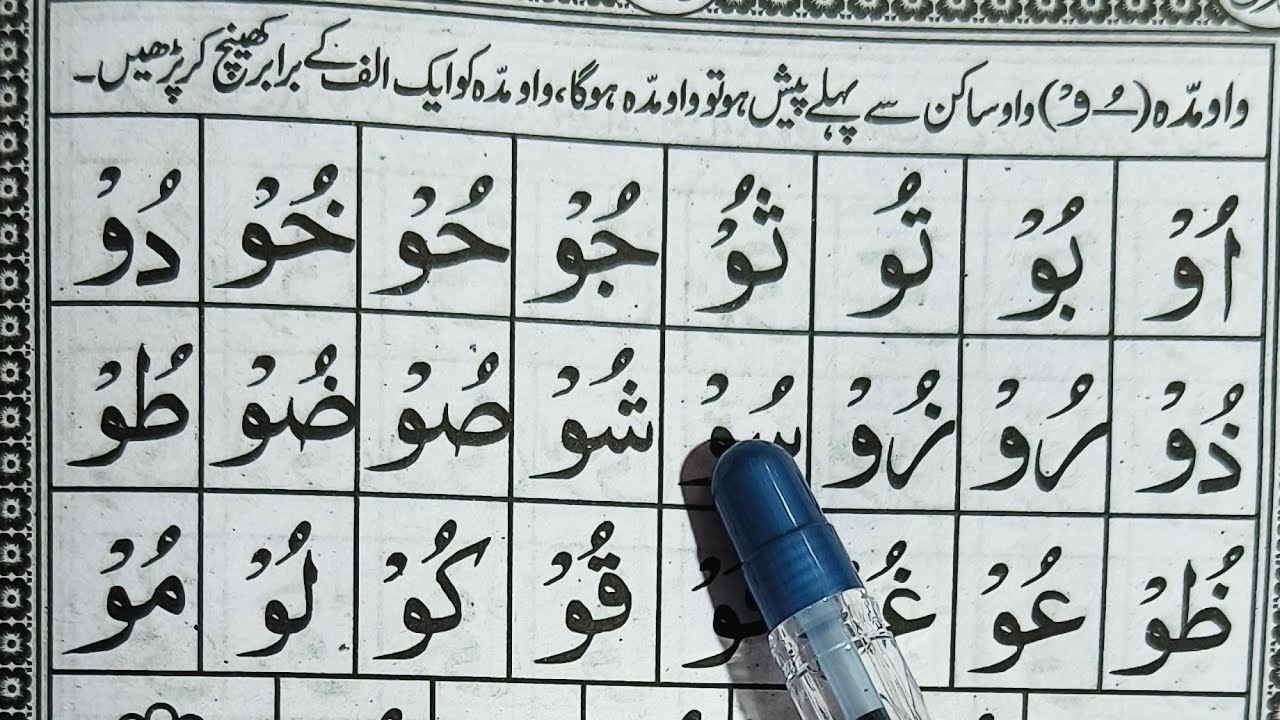 واو مدّہ (ـُ وْ) واو ساکن سے پہلے پیش ہو تو واو مدّہ ہوگا، واو مدّہ کو ایک الف کے برابر کھینچ کر پڑھیں۔
اُوْ بُوْ تُو ثُوْ جُوْ حُوْ خُوْ دُوْ
ذُوْ رُوْ زُوْ سُوْ شُوْ صُوْ ضُوْ طُوْ
ظُوْ عُوْ غُ قُوْ كُوْ لُوْ مُوْ